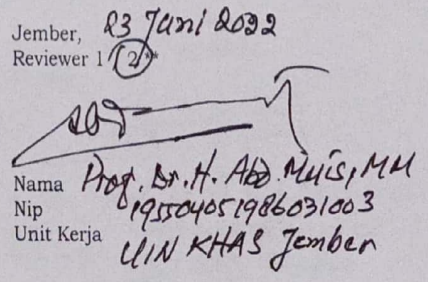 Jember, 23 Juni 2022
Reviewer 1 / 2 **
Nama Prof. Dr. H. Abd. Muis, MM
Nip 195504051986031003
Unit Kerja UIN KHAS Jember